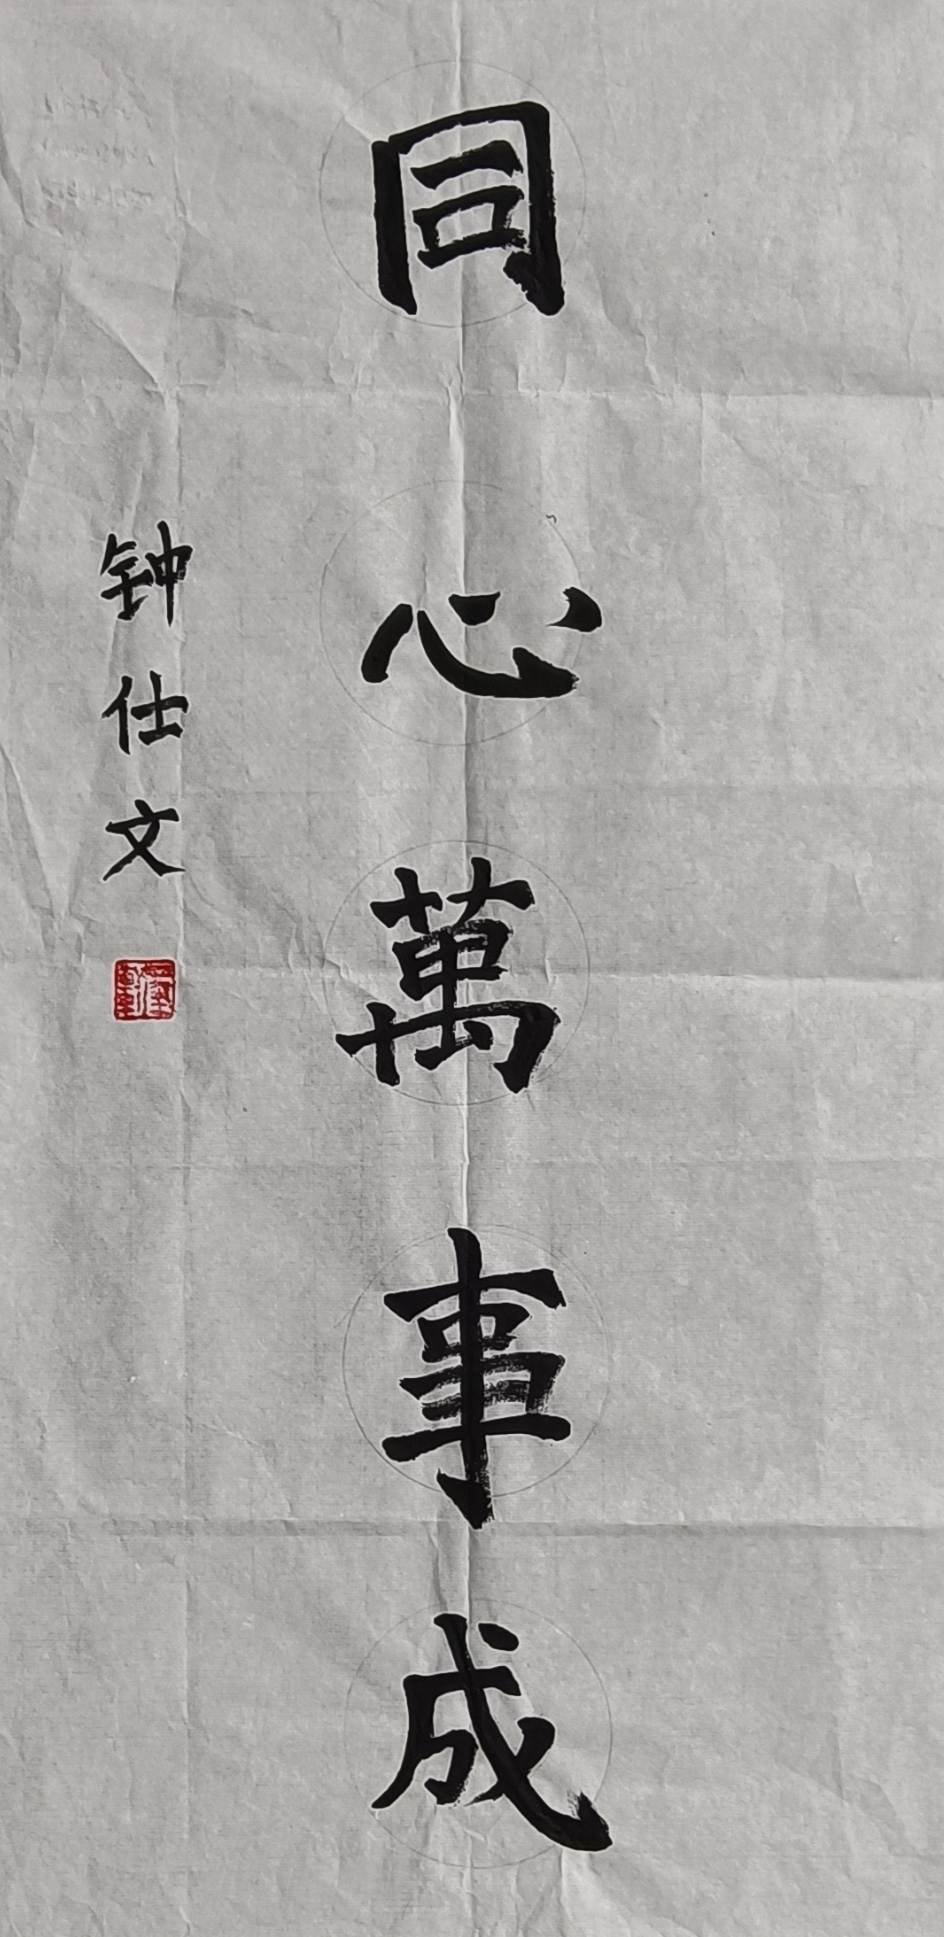 同心萬事成
钟仕文